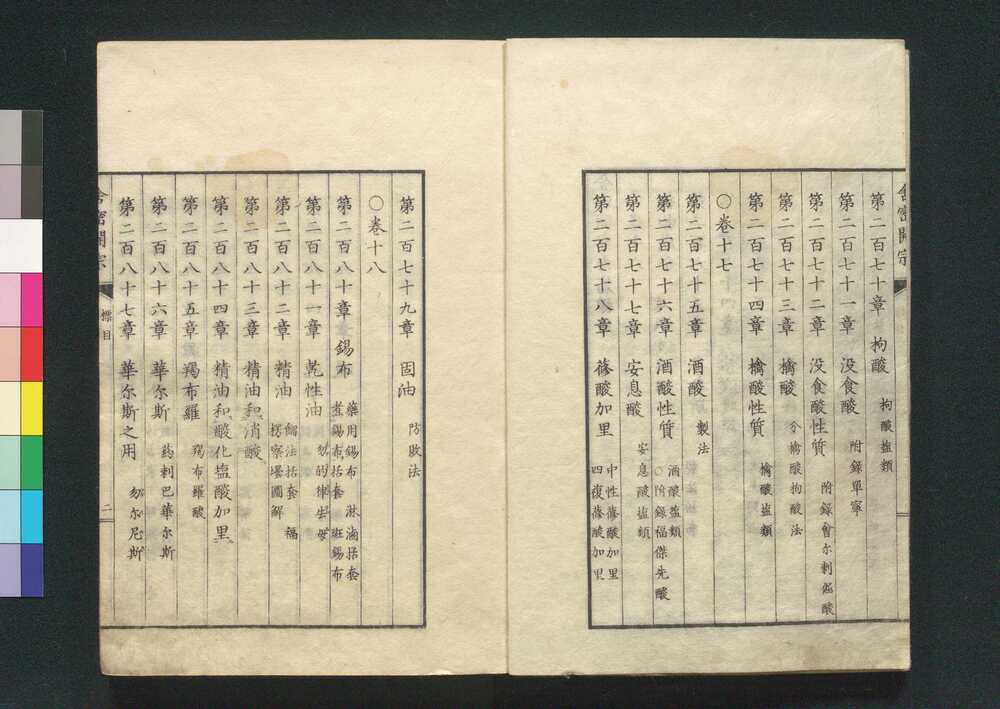 舎密開宗
第二百七十章 拘酸 拘酸塩類
第二百七十一章 没食酸 附錄單寧
第二百七十二章 没食酸性質
第二百七十三章 檎酸 分檎酸拘酸法
第二百七十四章 檎酸性質 檎酸塩類
○巻十七
第二百七十五章 酒酸 製法
第二百七十六章 酒酸性質 酒酸塩類
○附錄福傑先酸
第二百七十七章 安息酸 安息酸塩類
第二百七十八章 蓚酸加里 中性蓚酸加里
四復蓚酸加里
第二百七十九章 固油 防敗法
○巻十八
第二百八十章 錫布 藥用錫布 淋滷括套
煮錫布括套 班錫布
第二百八十一章 乾性油
第二百八十二章 精油 餾法括套 福
楞察壜圖解
第二百八十三章 精油和消酸
第二百八十四章 精油和酸化塩酸加里
第二百八十五章 羯布羅 羯布羅酸
第二百八十六章 華尓斯 葯剌巴華尓斯
第二百八十七章 華尓斯之用 勿尓尼斯
舎密開宗 標目 二